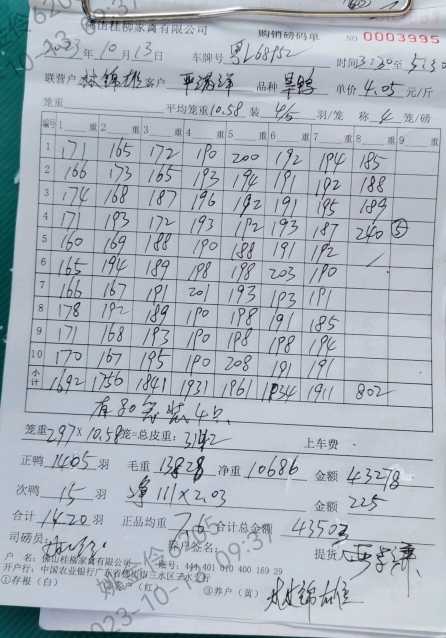 佛山桂柳家禽有限公司
购销磅码单 NO 0003995
2023年10月13日 车牌号 粤L68952 时间3:30至5:30
联营户 林锦雄 客户 品种 单价 4.05 元/斤
笼重 平均笼重10.58 装 4/5 羽/笼 称 4 笼/磅
编号 1 重 2 重 3 重 4 重 5 重 6 重 7 重 8 重 9 重
1 171 165 172 190 200 192 194 185
2 166 173 165 193 194 191 192 188
3 174 168 187 196 192 191 195 189
4 171 193 172 193 192 193 187 240 ⑤
5 160 169 188 190 188 191 192
6 165 194 189 198 198 203 190
7 166 167 191 201 193 193 191
8 178 192 189 190 198 191 185
9 171 168 193 190 198 198 194
10 170 167 195 190 208 191 191
小计 1692 1756 1841 1931 1961 1934 1911 802
有80笼装4只
笼重 297×10.58 笼=总皮重: 3142 上车费
正鸭 1405 羽 毛重 13828 净重 10686 金额 43278
次鸭 15 羽 净111×2.03 金额 225
合计 1420 羽 正品均重 7.6 合计总金额 43503
司磅员: 客户签名: 提货人
户 名: 佛山桂柳家禽有限公司 账号: 444 401 010 400 169 29
开户行: 中国农业银行
①存根(白) (红) ③养户(黄) 林锦雄